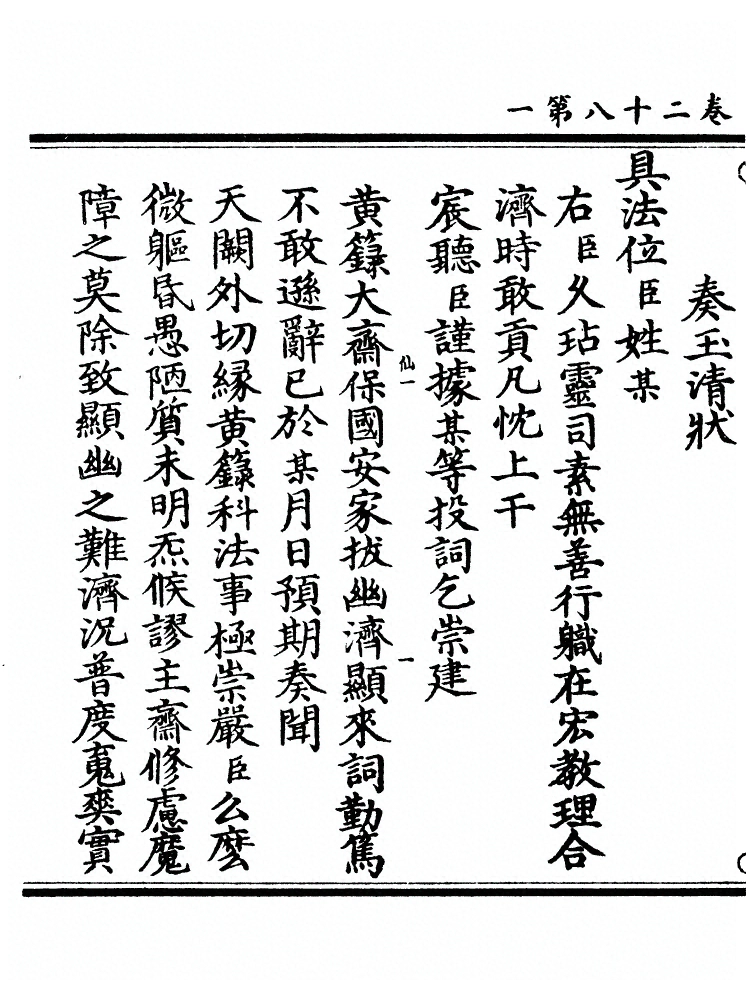 卷二十八第一
奏玉清狀
具法位臣姓某
右臣久玷靈司素無善行職在宏教理合
濟時敢貢凡忱上干
宸聽臣謹據某等投詞乞崇建
仙一
一
黃籙大齋保國安家拔幽濟顯來詞勤篤
不敢遜辭已於某月日預期奏聞
天闕外切緣黃籙科法事極崇嚴臣么麼
微軀昏愚陋質未明炁候謬主齋修慮魔
障之莫除致顯幽之難濟况普度䰟爽實